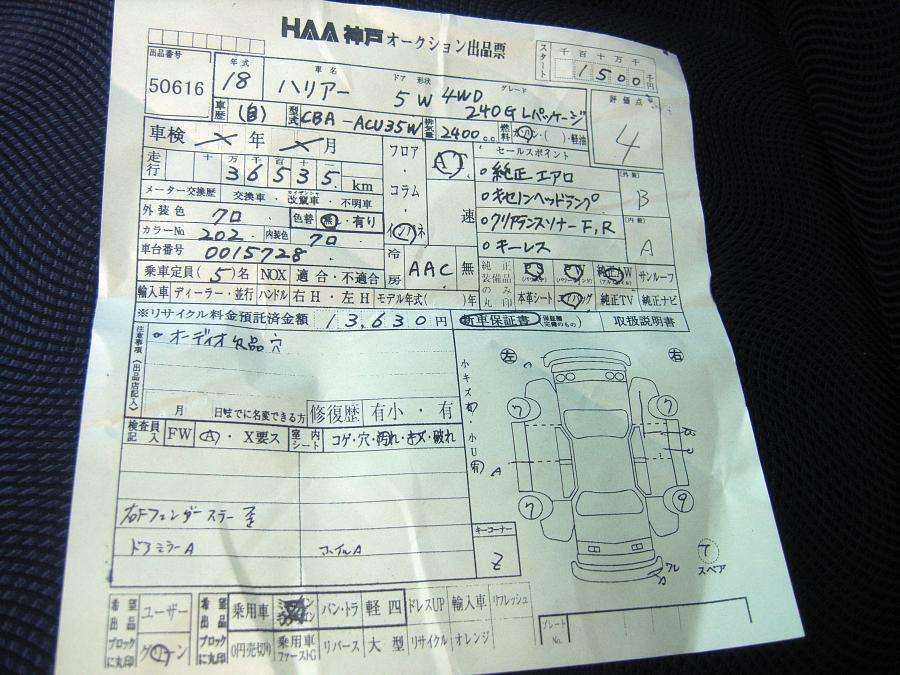 HAA 神戸 オークション出品票
スタート 千百十万千 1500 千円
出品番号 50616
年式 18 車名 ハリアー ドア 形状 5W 4WD グレード 240G Lパッケージ
評価点 4
車歴 (自) 型式 CBA-ACU35W 排気量 2400cc 燃料 ガソリン・( )・軽油
車検 × 年 × 月
走行 十万千百十 36535 km
メーター交換歴 交換車・改竄車・不明車
フロア・コラム・インパネ AT 速
セールスポイント
○純正エアロ
○キセノンヘッドランプ
○クリアランスソナーF,R
○キーレス
外装 B
内装 A
外装色 クロ 色替 無・有り
カラーNo 202 内装色 クロ
車台番号 0015728
冷房 AAC 無
乗車定員 (5)名 NOX 適合・不適合
純正装備品のみ丸印 PS PW 純正AW サンルーフ
本革シート エアバッグ 純正TV 純正ナビ
輸入車 ディーラー・並行 ハンドル 右H・左H モデル年式( )年
※リサイクル料金預託済金額 13,630円 新車保証書 (保証継続完備のもの) 取扱説明書
注意事項(出品店記入)
○オーディオ欠品穴
月 日迄でに名変できる方 修復歴 有小・有
小キズ有・小U有
検査員記入 FW (A)・X要ス 室内シート コゲ・穴・汚れ・キズ・破れ
右Fフェンダー ステー 歪
ドアミラーA ホイルA
キーコーナー Z
左 右
7 7 A 7 9
ワレ
T スペア
希望出品 ユーザー 乗用車 バン・トラ 軽四 ドレスUP 輸入車 リフレッシュ
ブロックに丸印 グリーン 0円売切 乗用車ファーストG リバース 大型 リサイクル オレンジ
プレートNo.